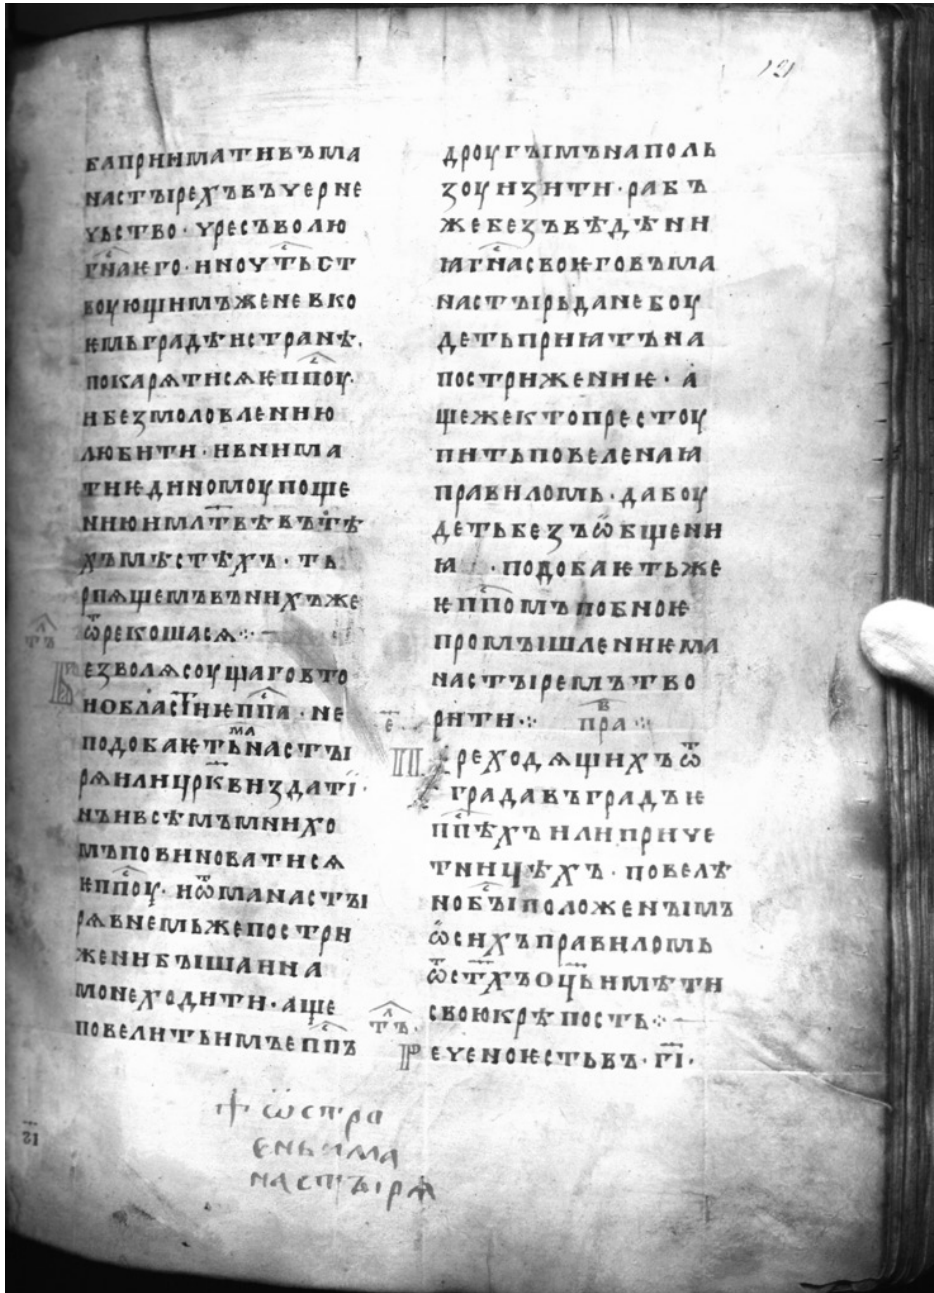 121
ка принмати въ ма
настырехъ въ чер не
чьство · чресъ волю
гна ѥго · иночьст
вующимъ же не в ко
ѥмь градѣ и странѣ ·
покарѧтисѧ ѥппоу ·
и безмоловленню
любити · и внима
ти ѥдиномоу поще
нию и млтвѣ въ тѣ
хъ мѣстѣхъ · тъ
рпѧще мъ въ нихъ же
ѿрекошасѧ ⁘
тъ
Без волѧ соущаго в то
и области ѥппа · не
подобаѥть манасты
рѧ или црквии здатї ·
нъ и всѣмъ мнихо
мъ повиноватисѧ
ѥппоу · и ѿ манасты
рѧ в немьже постри
жени быша ни на
мо не ходити · аще
повелить имъ еппъ
дроугымъ на поль
зоу изити · раб ъ
же безъ вѣдѣни
ꙗ гна своѥго въ ма
настырь да не боу
деть приꙗтъ на
пострижение · а
ще же кто престоу
пить повеленаꙗ
правиломь · да боу
деть безъ ѡбщени
ꙗ · подобаѥть же
ѥппомъ побноѥ
промышлениѥ ма
настыремъ тво
рити ⁘
е · пра в ⁘
Преходѧщихъ ѿ
града въ градъ ѥ
ппѣхъ или приче
тницѣхъ · повелѣ
но бы положенымъ
ѡ сихъ правиломь
ѿ стхъ оць имѣти
свою крѣпость ⁘
тъ ·
Речено ѥсть въ · гі ·
+ ѡстра
еньима
настырѧ
12